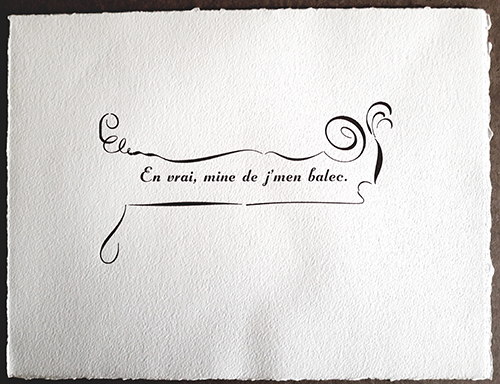 En vrai, mine de j'men balec.